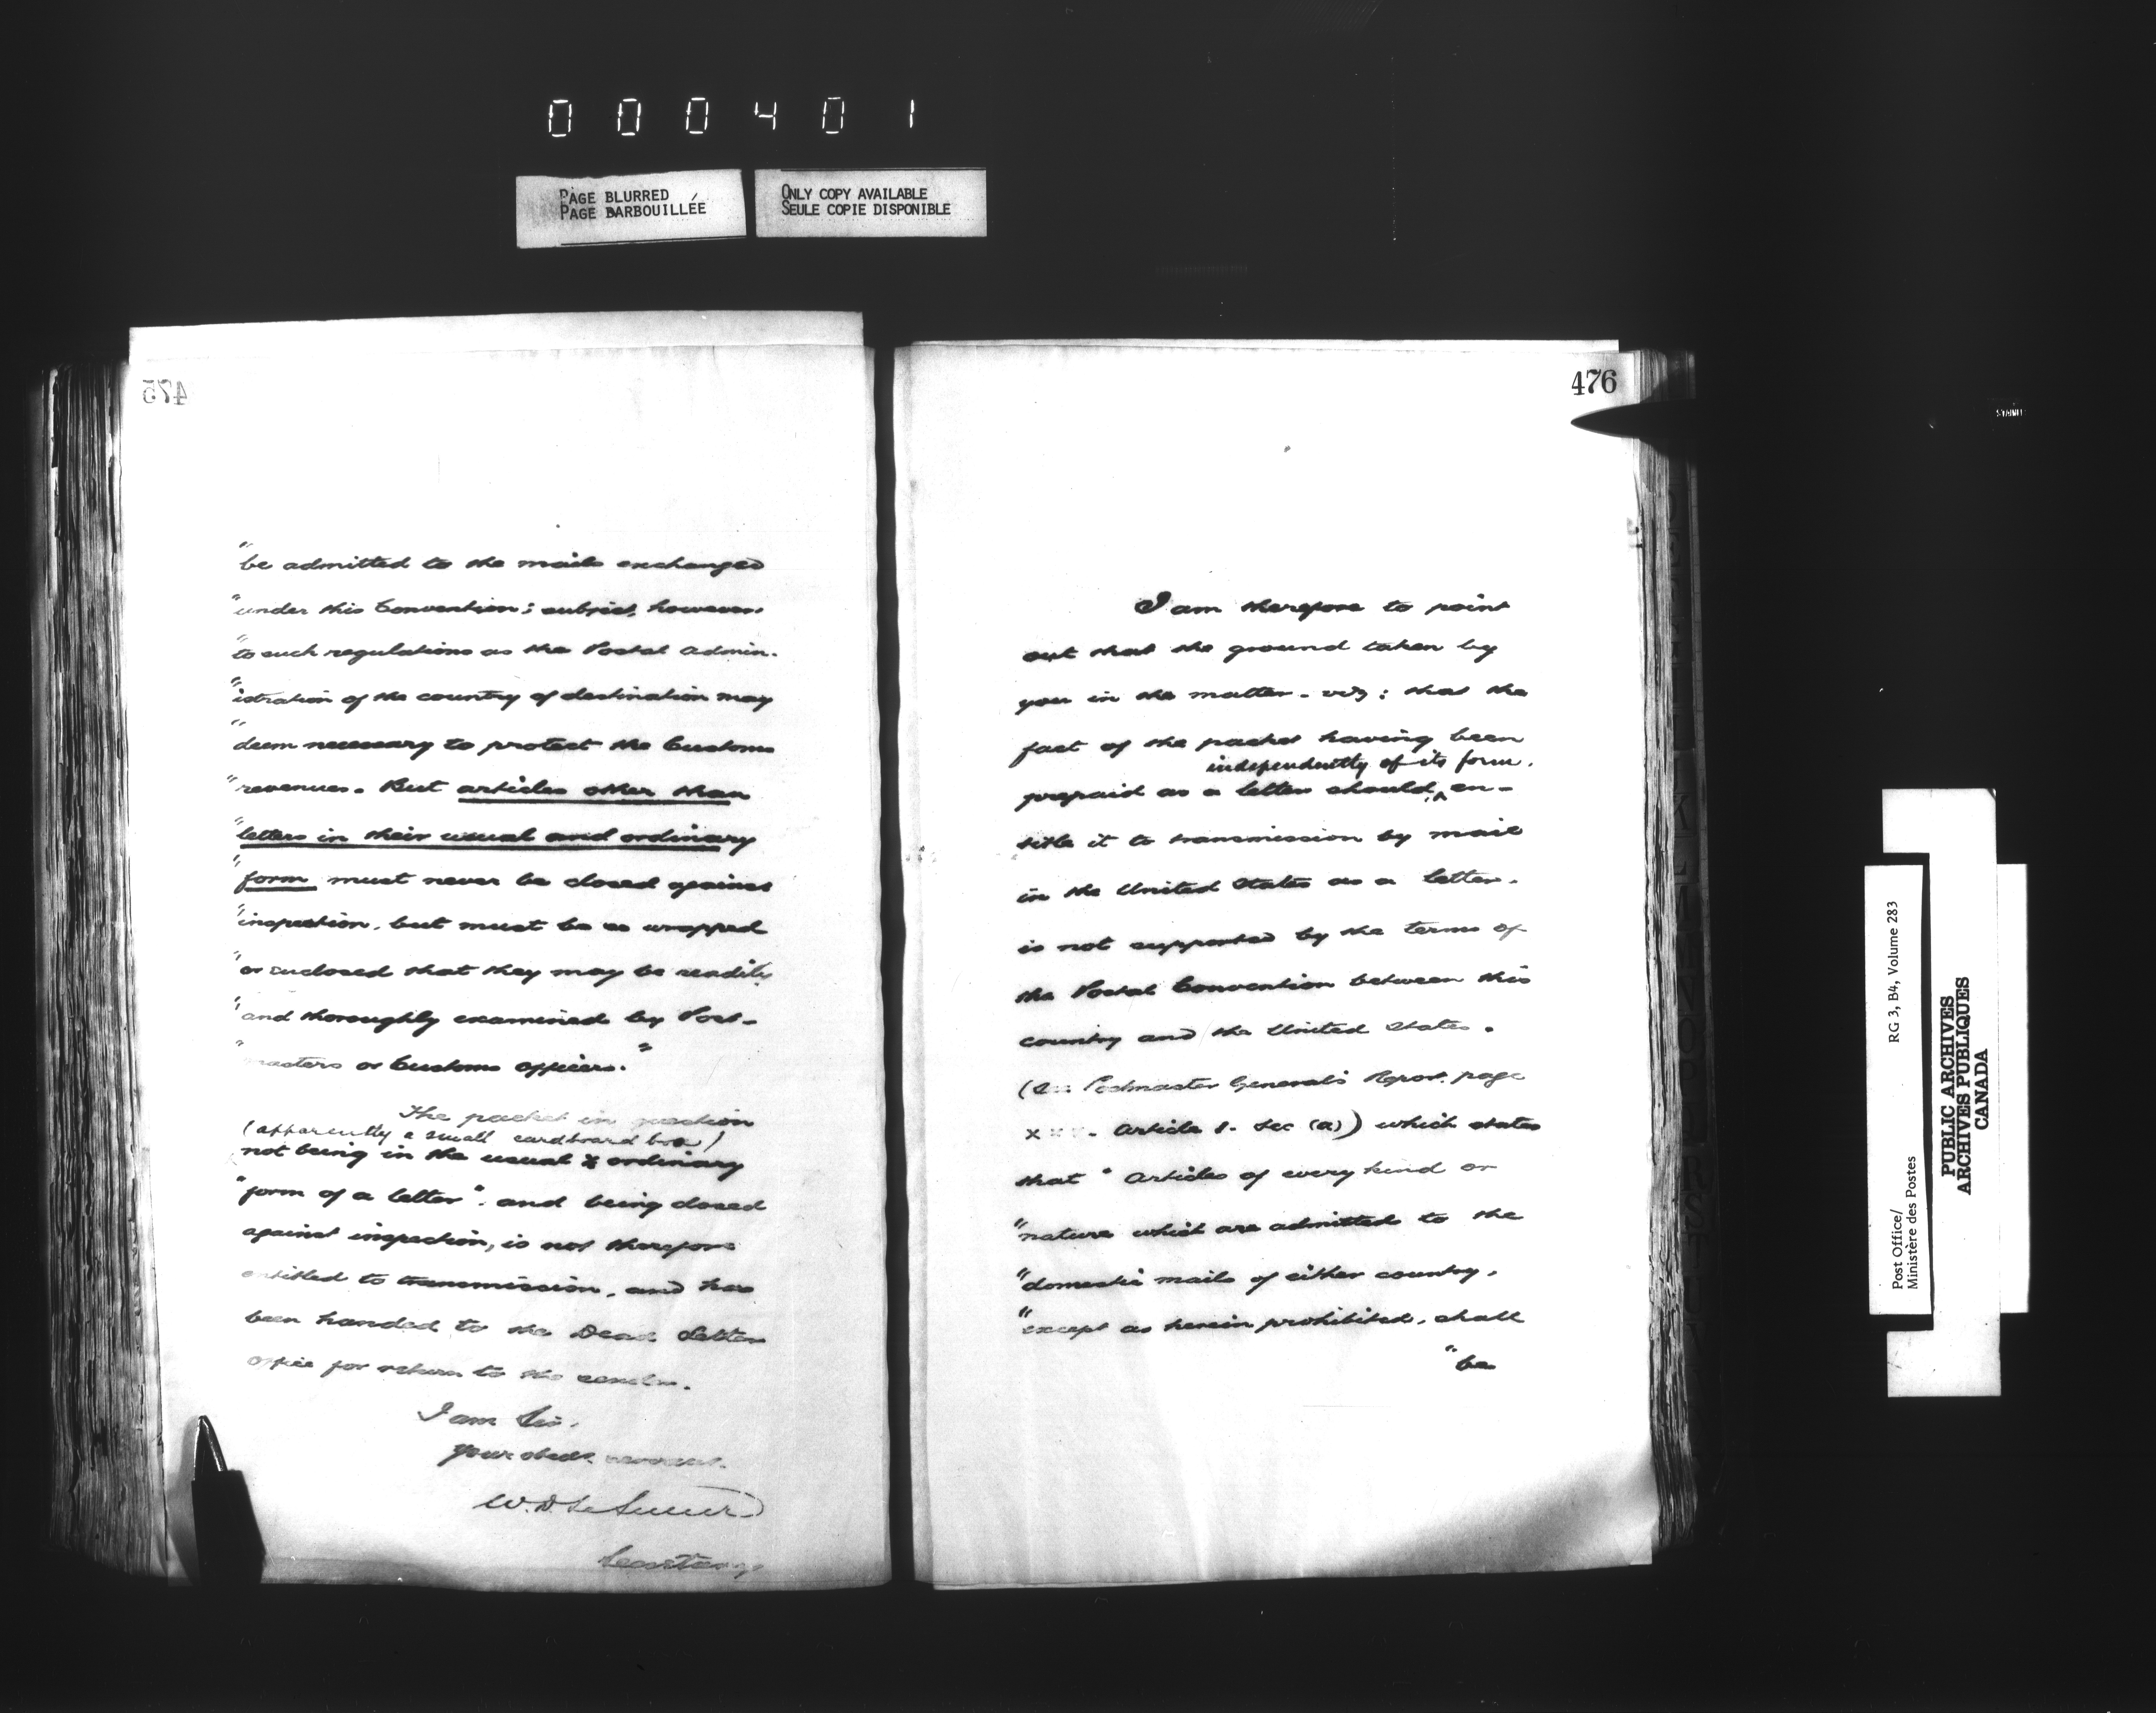 000401
PAGE BLURRED
PAGE BARBOUILLÉE
ONLY COPY AVAILABLE
SEULE COPIE DISPONIBLE
475
"be admitted to the mails exchanged
"under this Convention; subject, however
"to such regulations as the Postal Admin-
"istration of the country of destination may
"deem necessary to protect the Customs
"revenues. But articles other than
"letters in their usual and ordinary
"form must never be closed against
"inspection, but must be so wrapped
"or enclosed that they may be readily
"and thoroughly examined by Post-
"masters or Customs officers."
The packet in question
(apparently a small cardboard box)
not being in the usual & ordinary
"form of a letter". and being closed
against inspection, is not therefore
entitled to transmission, and has
been handed to the Dead Letter
Office for return to the sender.
I am Sir,
Your obedt. servant.
W. D. Le Sueur
Secretary
476
I am therefore to point
out that the ground taken by
you in the matter - viz: that the
fact of the packet having been
independently of its form.
prepaid as a letter should, ^ en-
title it to transmission by mail
in the United States as a letter.
is not supported by the terms of
the Postal Convention between this
country and the United States.
(See Postmaster General's Report. page
xxv. Article 1. Sec (a)) which states
that "Articles of every kind or
"nature which are admitted to the
"domestic mails of either country,
"except as herein prohibited, shall
"be
Post Office/
Ministère des Postes
RG 3, B4, Volume 283
PUBLIC ARCHIVES
ARCHIVES PUBLIQUES
CANADA